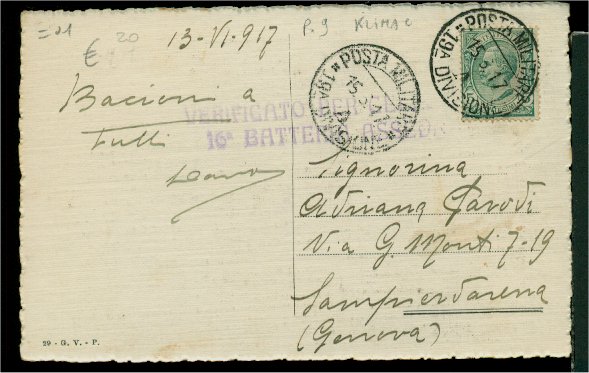 = 21
€ 20
13-VI-917
P. 9
Bacioni a
tutti
POSTA MILITARE
19A DIVISIONE
15
17
POSTA MILITARE
19A DIVISIONE
15
17
VERIFICATO PER
16ª BATTERIA ASSED
Signorina
Adriana Parodi
Via G. Monti 7-19
Sampierdarena
(Genova)
29 - G. V. - P.